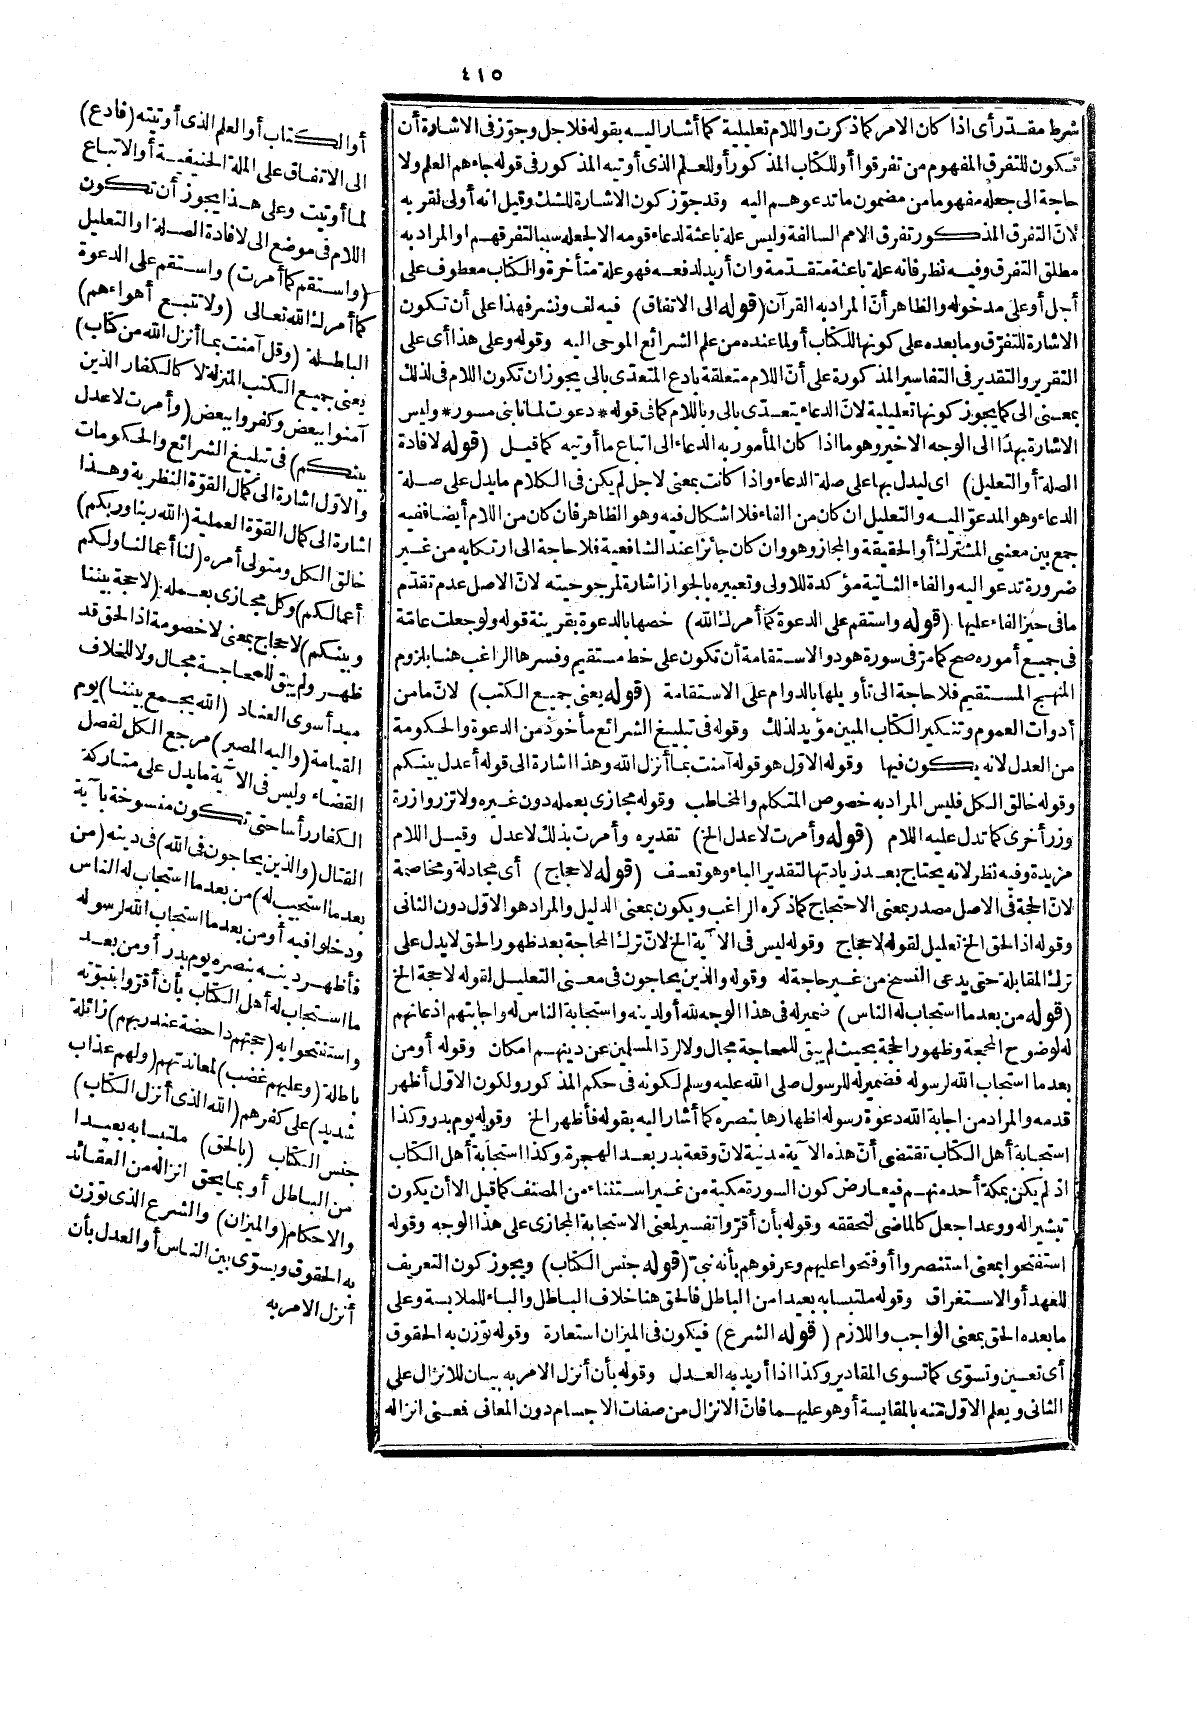 ٤١٥
شرط مقدر أى اذا كان الامر كما ذكرت واللام تعليلية كما أشار اليه بقوله فلاجل وجوّز فى الاشارة أن
تكون للتفرق المفهوم من تفرقوا أو للكتاب المذكور أو للعلم الذى أوتيه المذكور فى قوله جاءهم العلم ولا
حاجة الى جعله مفهوما من مضمون ما تدعوهم اليه وقد جوّز كون الاشارة للشك وقيل انه أولى لقربه
لانّ التفرق المذكور تفرق الامم السالفة وليس علة باعثة لدعاء قومه الا لجعله سببا لتفرقهم أو المراد به
مطلق التفرق وفيه نظر فانه علة باعثة متقدّمة وان أريد لدفعه فهو علة متأخرة والكتاب معطوف على
أجل أو على مدخوله والظاهر أنّ المراد به القرآن (قوله الى الاتفاق) فيه لف ونشر فهذا على أن تكون
الاشارة للتفرّق وما بعده على كونها للكتاب أو لما عنده من علم الشرائع الموحى اليه وقوله وعلى هذا أى على
التقرير والتقدير فى التفاسير المذكورة على أنّ اللام متعلقة بادع المتعدّى بالى يجوز ان تكون اللام فى لذلك
بمعنى الى كما يجوز كونها تعليلية لانّ الدعاء يتعدّى بالى وباللام كما فى قوله * دعوت لما نابنى مسور * وليس
الاشارة بهذا الى الوجه الاخير وهو ما اذا كان المأمور به الدعاء الى اتباع ما أوتيه كما قيل (قوله لافادة
الصلة أو التعليل) اى ليدل بها على صلة الدعاء واذا كانت بمعنى لاجل لم يكن فى الكلام ما يدل على صلة
الدعاء وهو المدعوّ اليه والتعليل ان كان من الفاء فلا اشكال فيه وهو الظاهر فان كان من اللام أيضا ففيه
جمع بين معنيى المشترك أو الحقيقة والمجاز وهو وان كان جائزا عند الشافعية فلا حاجة الى ارتكابه من غير
ضرورة تدعو اليه والفاء الثانية مؤكدة للاولى وتعبيره بالجواز اشارة لمرجوحيته لانّ الاصل عدم تقدّم
ما فى حيز الفاء عليها (قوله واستقم على الدعوة كما أمرك الله) خصها بالدعوة بقرينة قوله ولو جعلت عامّة
فى جميع أموره صح كما مرّ فى سورة هود والاستقامة أن تكون على خط مستقيم وفسرها الراغب هنا بلزوم
المنهج المستقيم فلا حاجة الى تأويلها بالدوام على الاستقامة (قوله يعنى جميع الكتب) لانّ ما من
أدوات العموم وتنكير الكتاب المبين مؤيد لذلك وقوله فى تبليغ الشرائع مأخوذ من الدعوة والحكومة
من العدل لانه يكون فيها وقوله الاوّل هو قوله آمنت بما أنزل الله وهذا اشارة الى قوله أعدل بينكم
وقوله خالق الكل فليس المراد به خصوص المتكلم والمخاطب وقوله مجازى بعمله دون غيره ولا تزر وازرة
وزر أخرى كما تدل عليه اللام (قوله وأمرت لاعدل الخ) تقديره وأمرت بذلك لاعدل وقيل اللام
مزيدة وفيه نظر لانه يحتاج بعد زيادتها لتقدير الباء وهو تعسف (قوله لاحجاج) أى مجادلة ومخاصمة
لانّ الحجة فى الاصل مصدر بمعنى الاحتجاج كما ذكره الراغب ويكون بمعنى الدليل والمراد هو الاوّل دون الثانى
وقوله اذ الحق الخ تعليل لقوله لاحجاج وقوله ليس فى الآية الخ لانّ ترك المحاجة بعد ظهور الحق لا يدل على
ترك المقابلة حتى يدعى النسخ من غير حاجة له وقوله والذين يحاجون فى معنى التعليل لقوله لاحجة الخ
(قوله من بعد ما استجاب له الناس) ضميره فى هذا الوجه لله أو لدينه واستجابة الناس له واجابتهم اذعانهم
له لوضوح المحجة وظهور الحجة بحيث لم يبق للمحاجة مجال ولا لردّ المسلمين عن دينهم امكان وقوله أو من
بعد ما استجاب الله لرسوله فضميره للرسول صلى الله عليه وسلم لكونه فى حكم المذكور ولكون الاوّل أظهر
قدمه والمراد من اجابة الله دعوة رسوله اظهارها بنصره كما أشار اليه بقوله فأظهر الخ وقوله يوم بدر وكذا
استجابة أهل الكتاب تقتضى أنّ هذه الآية مدنية لانّ وقعة بدر بعد الهجرة وكذا استجابة أهل الكتاب
اذ لم يكن بمكة أحد منهم فيعارض كون السورة مكية من غير استثناء من المصنف كما قيل الا أن يكون
تبشيرا له ووعدا جعل كالماضى لتحققه وقوله بأن أقرّوا تفسير لمعنى الاستجابة المجازى على هذا الوجه وقوله
استفتحوا بمعنى استنصروا أو فتحوا عليهم وعرفوهم بأنه نبىّ (قوله جنس الكتاب) ويجوز كون التعريف
للعهد أو الاستغراق وقوله ملتبسا به بعيدا من الباطل فالحق هنا خلاف الباطل والباء للملابسة وعلى
ما بعده الحق بمعنى الواجب واللازم (قوله الشرع) فيكون فى الميزان استعارة وقوله توزن به الحقوق
أى تعين وتسوّى كما تسوى المقادير وكذا اذا أريد به العدل وقوله بأن أنزل الامر به بيان للانزال على
الثانى ويعلم الاوّل منه بالمقايسة أو هو عليهما فانّ الانزال من صفات الاجسام دون المعانى فعنى انزاله
أو الكتاب أو العلم الذى أوتيته (فادع)
الى الاتفاق على الملة الحنيفية أو الاتباع
لما أوتيت وعلى هذا يجوز أن تكون
اللام فى موضع الى لافادة الصلة أو التعليل
(واستقم كما أمرت) واستقم على الدعوة
كما أمرك الله تعالى (ولا تتبع أهواءهم)
الباطلة (وقل آمنت بما أنزل الله من كتاب)
يعنى جميع الكتب المنزلة لا كالكفار الذين
آمنوا ببعض وكفروا ببعض (وأمرت لاعدل
بينكم) فى تبليغ الشرائع والحكومات
والاوّل اشارة الى كمال القوّة النظرية وهذا
اشارة الى كمال القوّة العملية (الله ربنا وربكم)
خالق الكل ومتولى أمره (لنا أعمالنا ولكم
أعمالكم) وكل مجازى بعمله (لاحجة بيننا
وبينكم) لاحجاج بمعنى لا خصومة اذ الحق قد
ظهر ولم يبق للمحاجة مجال ولا للخلاف
مبدأ سوى العناد (الله يجمع بيننا) يوم
القيامة (واليه المصير) مرجع الكل لفصل
القضاء وليس فى الآية ما يدل على متاركة
الكفار رأسا حتى تكون منسوخة بآية
القتال (والذين يحاجون فى الله) فى دينه (من
بعد ما استجيب له) من بعد ما استجاب له الناس
ودخلوا فيه أو من بعد ما استجاب الله لرسوله
فأظهر دينه بنصره يوم بدر أو من بعد
ما استجاب له أهل الكتاب بأن أقرّوا بنبوّته
واستفتحوا به (حجتهم داحضة عند ربهم) زائلة
باطلة (وعليهم غضب) لمعاندتهم (ولهم عذاب
شديد) على كفرهم (الله الذى أنزل الكتاب)
جنس الكتاب (بالحق) ملتبسا به بعيدا
من الباطل أو بما يحق انزاله من العقائد
والاحكام (والميزان) والشرع الذى توزن
به الحقوق ويسوّى بين الناس أو العدل بأن
أنزل الامر به